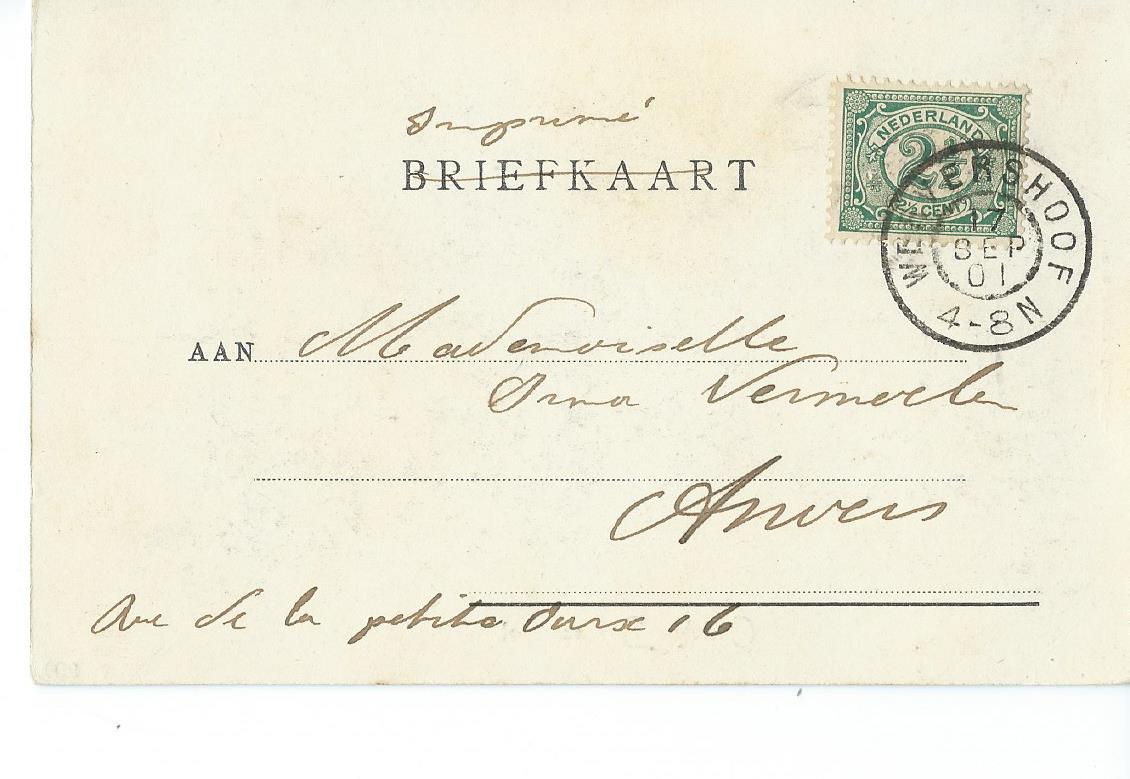 Imprimé
BRIEFKAART
NEDERLAND
2½
2½ CENT
WERVERSHOOF
17
SEP
01
4-8N
AAN Mademoiselle
Irma Vermeulen
Anvers
Rue de la petite Ourse 16